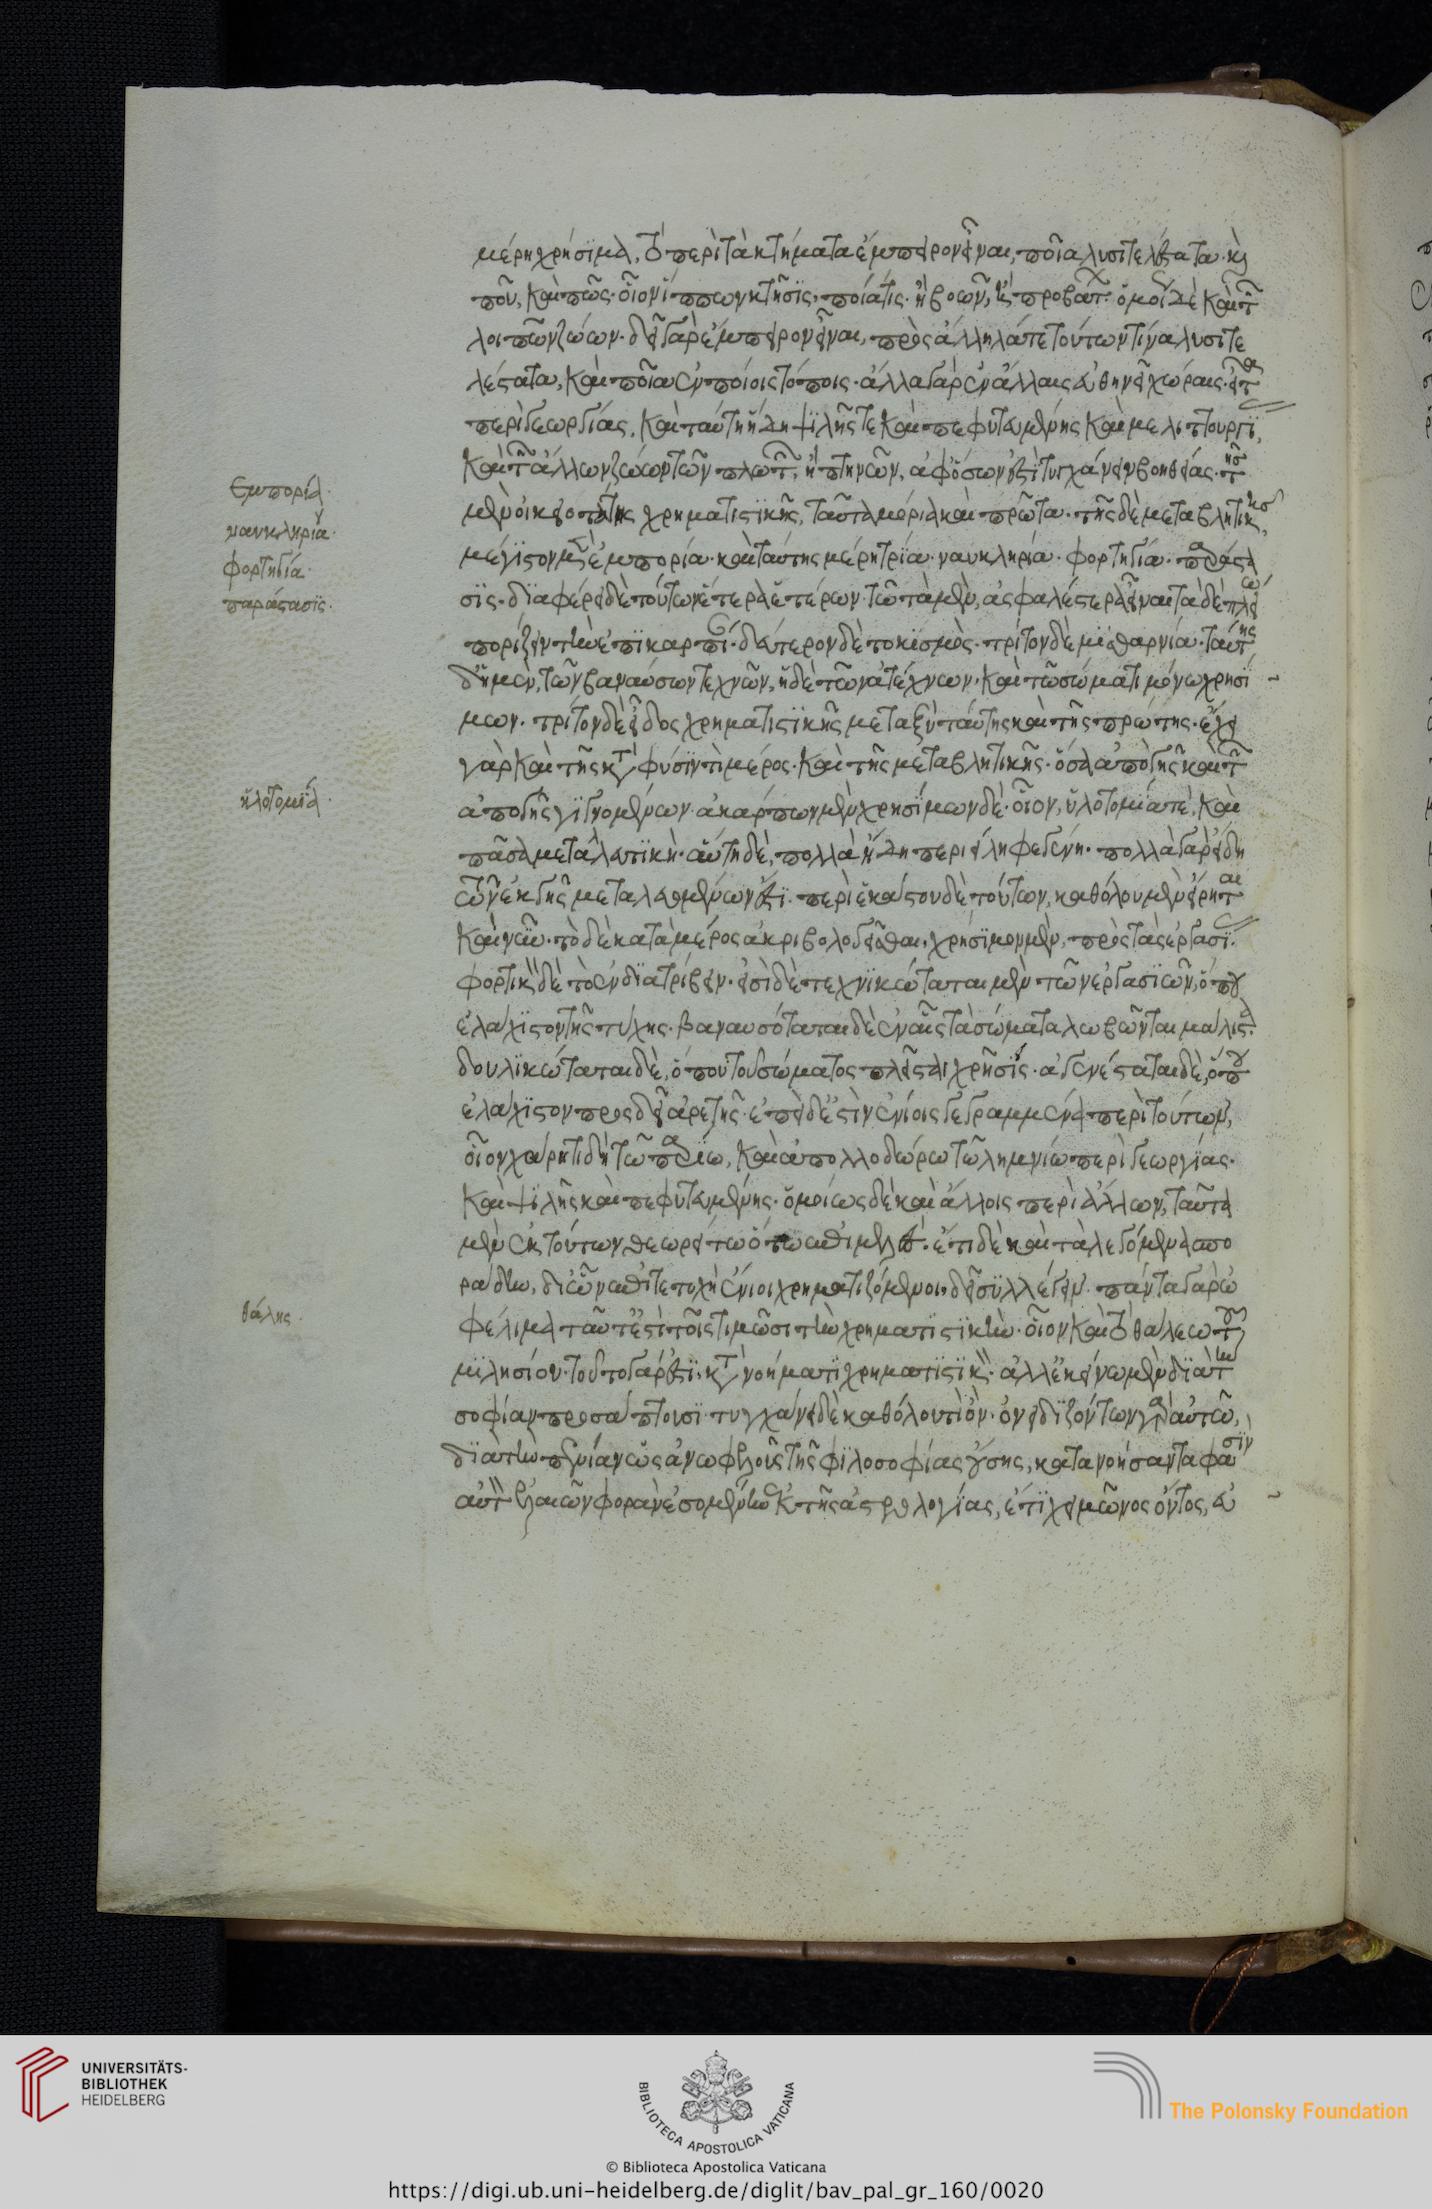 μέρη χρήσιμα, τὸ περὶ τὰ κτήματα ἔμπειρον εἶναι, ποῖα λυσιτελέστατα. καὶ
ποῦ, καὶ πῶς. οἷον ἵππων κτῆσις, ποία τις. ἢ βοῶν, ἢ προβάτων. ὁμοίως δὲ καὶ τῶν
λοιπῶν ζώων. δεῖ γὰρ ἔμπειρον εἶναι, πρὸς ἄλληλά τε τούτων τίνα λυσιτε
λέστατα, καὶ ποῖα ἐν ποίοις τόποις. ἄλλα γὰρ ἐν ἄλλαις εὐθηνεῖ χώραις. εἶτα
περὶ γεωργίας, καὶ ταύτη ἤδη ψιλῆς τε καὶ πεφυτευμένης καὶ μελιττουργί,
καὶ τῶν ἄλλων ζώων τῶν πλωτῶν, ἢ πτηνῶν, ἀφ' ὅσων ἔστι τυγχάνειν βοηθείας. τῆς
μὲν οἰκειοτάτης χρηματιστικῆς, ταῦτα μόρια καὶ πρῶτα. τῆς δὲ μεταβλητικῆς,
μέγιστον μὲν ἐμπορία. καὶ ταύτης μέρη τρία. ναυκληρία. φορτηγία. παράστα
σις. διαφέρει δὲ τούτων ἕτερα ἑτέρων τῷ τὰ μὲν, ἀσφαλέστερα εἶναι τὰ δὲ πλείω
πορίζειν τὴν ἐπικαρπί. δεύτερον δὲ τοκισμὸς. τρίτον δὲ μισθαρνία. ταύτης
δ' ἡ μὲν, τῶν βαναύσων τεχνῶν, ἡ δὲ τῶν ἀτέχνων. καὶ τῷ σώματι μόνῳ χρησί
μων. τρίτον δὲ εἶδος χρηματιστικῆς μεταξὺ ταύτης καὶ τῆς πρώτης. ἔχει
γὰρ καὶ τῆς κατὰ φύσιν τι μέρος. καὶ τῆς μεταβλητικῆς. ὅσα ἀπὸ γῆς καὶ τῶν
ἀπὸ γῆς γιγνομένων. ἀκάρπων μὲν χρησίμων δέ. οἷον, ὑλοτομία τε, καὶ
πᾶσα μεταλλευτικὴ. αὕτη δὲ, πολλὰ ἤδη περιείληφε γένη. πολλὰ γὰρ εἴδη
τῶν ἐκ γῆς μεταλλευομένων ἐστί. περὶ ἑκάστου δὲ τούτων, καθόλου μὲν εἴρηται
καὶ νῦν. τὸ δὲ κατὰ μέρος ἀκριβολογεῖσθαι, χρήσιμον μὲν, πρὸς τὰς ἐργασί.
φορτικὸν δὲ τὸ ἐνδιατρίβειν. εἰσὶ δὲ τεχνικώταται μὲν τῶν ἐργασιῶν, ὅπου
ἐλάχιστον τῆς τύχης. βαναυσόταται δὲ ἐν αἷς τὰ σώματα λωβῶνται μάλιστα.
δουλικώταται δὲ, ὅπου τοῦ σώματος πλεῖσται χρήσεις. ἀγενέσταται δὲ, ὅπου
ἐλάχιστον προσδεῖ ἀρετῆς. ἐπεὶ δ' ἔστιν ἐνίοις γεγραμμένα περὶ τούτων,
οἷον χάρητι δὴ τῷ παρίῳ, καὶ ἀπολλοδώρῳ τῷ λημνίῳ περὶ γεωργίας.
καὶ ψιλῆς καὶ πεφυτευμένης. ὁμοίως δὲ καὶ ἄλλοις περὶ ἄλλων, ταῦτα
μὲν ἐκ τούτων θεωρείτω ὅτῳ ἐπιμελές. ἔτι δὲ καὶ τὰ λεγόμενα σπο
ράδην, δι' ὧν ἐπιτετυχήκασιν ἔνιοι χρηματιζόμενοι, δεῖ συλλέγειν. πάντα γὰρ ὠ
φέλιμα ταῦτ' ἐστὶ τοῖς τιμῶσι τὴν χρηματιστικὴν. οἷον καὶ τὸ θάλεω τοῦ
μιλησίου. τοῦτο γάρ ἐστι, κατανόημά τι χρηματιστικόν. ἀλλ' ἐκείνῳ μὲν διὰ τὴν
σοφίαν προσάπτουσι. τυγχάνει δὲ καθόλου τι ὄν. ὀνειδιζόντων γὰρ αὐτῷ,
διὰ τὴν πενίαν ὡς ἀνωφελοῦς τῆς φιλοσοφίας οὔσης, κατανοήσαντα φασὶν
αὐτὸν ἐλαιῶν φορὰν ἐσομένην ἐκ τῆς ἀστρολογίας, ἔτι χειμῶνος ὄντος, εὐ
Ἐμπορία.
ναυκληρία.
φορτηγία.
παράστασις.
ὑλοτομία.
θάλης.
UNIVERSITÄTS-
BIBLIOTHEK
HEIDELBERG
BIBLIOTECA APOSTOLICA VATICANA
© Biblioteca Apostolica Vaticana
The Polonsky Foundation
https://digi.ub.uni-heidelberg.de/diglit/bav_pal_gr_160/0020